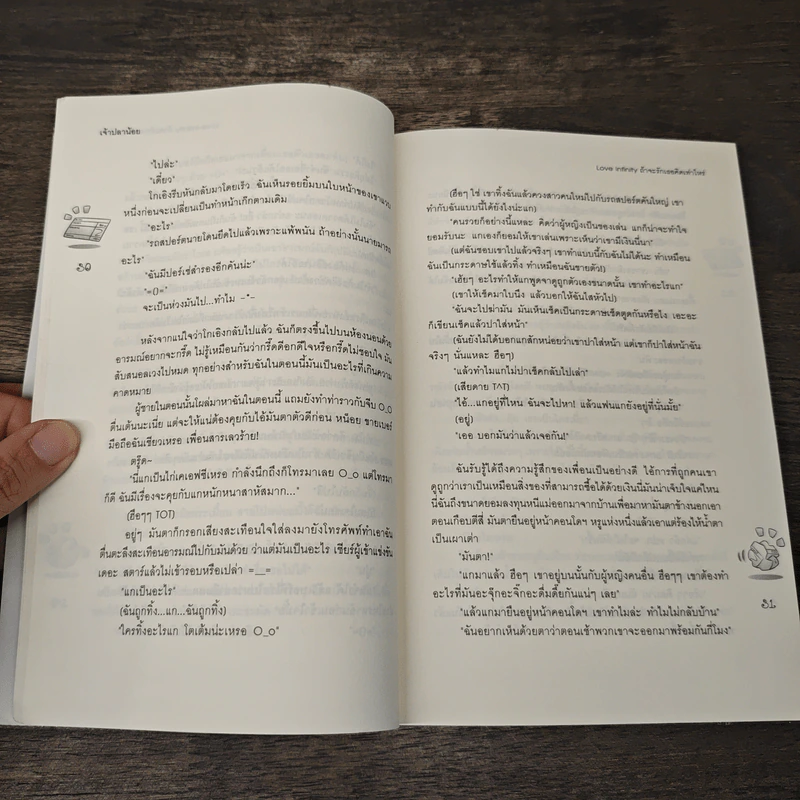 เจ้าปลาน้อย
"ไปล่ะ"
"เดี๋ยว"
โกเอิงรีบหันกลับมาโดยเร็ว ฉันเห็นรอยยิ้มบนใบหน้าของเขาแวบ
หนึ่งก่อนจะเปลี่ยนเป็นทำหน้าเก๊กตามเดิม
"อะไร"
"รถสปอร์ตนายโดนยึดไปแล้วเพราะแพ้พนัน ถ้าอย่างนั้นนายมารถ
อะไร"
"ฉันมีปอร์เช่สำรองอีกคันน่ะ"
"=()="
จะเป็นห่วงมันไป...ทำไม -*-
หลังจากแน่ใจว่าโกเอิงกลับไปแล้ว ฉันก็ตรงขึ้นไปบนห้องนอนด้วย
อารมณ์อยากจะกรี๊ด ไม่รู้เหมือนกันว่ากรี๊ดดีอกดีใจหรือกรี๊ดไม่ชอบใจ มัน
สับสนอลเวงไปหมด ทุกอย่างสำหรับฉันในตอนนี้มันเป็นอะไรที่เกินความ
คาดหมาย
ผู้ชายในตอนนั้นโผล่มาหาฉันในตอนนี้ แถมยังทำท่าราวกับจีบ O_O
ตื่นเต้นนะเนี่ย แต่จะให้แน่ต้องคุยกับไอ้มันตาตัวดีก่อน หน่อย ขายเบอร์
มือถือฉันเชียวเหรอ เพื่อนสารเลวร้าย!
ตรู๊ด~
"นี่แกเป็นไก่เคเอฟซีเหรอ กำลังนึกถึงก็โทรมาเลย O_o แต่โทรมา
ก็ดี ฉันมีเรื่องจะคุยกับแกหนักหนาสาหัสมาก..."
(ฮือๆๆ TOT)
อยู่ๆ มันตาก็กรอกเสียงสะเทือนใจใส่ลงมายังโทรศัพท์ทำเอาฉัน
ตื่นตะลึงสะเทือนอารมณ์ไปกับมันด้วย ว่าแต่มันเป็นอะไร เชียร์ผู้เข้าแข่งขัน
เดอะ สตาร์แล้วไม่เข้ารอบหรือเปล่า =__=
"แกเป็นอะไร"
(ฉันถูกทิ้ง...แก...ฉันถูกทิ้ง)
"ใครทิ้งอะไรแก โตเต้มน่ะเหรอ O_o"
30
Love Infinity ถ้าจะรักเธอคิดเท่าไหร่
(ฮือๆ ใช่ เขาทิ้งฉันแล้วควงสาวคนใหม่ไปกับรถสปอร์ตคันใหญ่ เขา
ทำกับฉันแบบนี้ได้ยังไงน่ะแก)
"คนรวยก็อย่างนี้แหละ คิดว่าผู้หญิงเป็นของเล่น แกก็น่าจะทำใจ
ยอมรับนะ แกเองก็ยอมให้เขาเล่นเพราะเห็นว่าเขามีเงินนี่นา"
(แต่ฉันชอบเขาไปแล้วจริงๆ เขาทำแบบนี้กับฉันไม่ได้นะ ทำเหมือน
ฉันเป็นกระดาษใช้แล้วทิ้ง ทำเหมือนฉันขายตัว!)
"เฮ้ยๆ อะไรทำให้แกพูดจาดูถูกตัวเองขนาดนั้น เขาทำอะไรแก"
(เขาให้เช็คมาใบนึง แล้วบอกให้ฉันใสหัวไป)
"ฉันจะไปฆ่ามัน มันเห็นเช็คเป็นกระดาษเช็ดตูดกันหรือไง เอะอะ
ก็เขียนเช็คแล้วปาใส่หน้า"
(ฉันยังไม่ได้บอกแกสักหน่อยว่าเขาปาใส่หน้า แต่เขาก็ปาใส่หน้าฉัน
จริงๆ นั่นแหละ ฮือๆ)
"แล้วทำไมแกไม่ปาเช็คกลับไปเล่า"
(เสียดาย T^T)
"ไอ้...แกอยู่ที่ไหน ฉันจะไปหา! แล้วแฟนแกยังอยู่ที่นั่นมั้ย"
(อยู่)
"เออ บอกมันว่าแล้วเจอกัน!"
ฉันรับรู้ได้ถึงความรู้สึกของเพื่อนเป็นอย่างดี ไอ้การที่ถูกคนเขา
ดูถูกว่าเราเป็นเหมือนสิ่งของที่สามารถซื้อได้ด้วยเงินนี่มันน่าเจ็บใจแค่ไหน
นี่ฉันถึงขนาดยอมลงทุนหนีแม่ออกมาจากบ้านเพื่อมาหามันตาข้างนอกเอา
ตอนเกือบตีสี่ มันตายืนอยู่หน้าคอนโดฯ หรูแห่งหนึ่งแล้วเอาแต่ร้องไห้น้ำตา
เป็นเผาเต่า
"มันตา!"
"แกมาแล้ว ฮือๆ เขาอยู่บนนั้นกับผู้หญิงคนอื่น ฮือๆๆ เขาต้องทำ
อะไรที่มันอะจุ๊กอะจิ๊กอะดึ่มดึ๋ยกันแน่ๆ เลย"
"แล้วแกมายืนอยู่หน้าคอนโดฯ เขาทำไมล่ะ ทำไมไม่กลับบ้าน"
"ฉันอยากเห็นด้วยตาว่าตอนเช้าพวกเขาจะออกมาพร้อมกันกี่โมง"
31